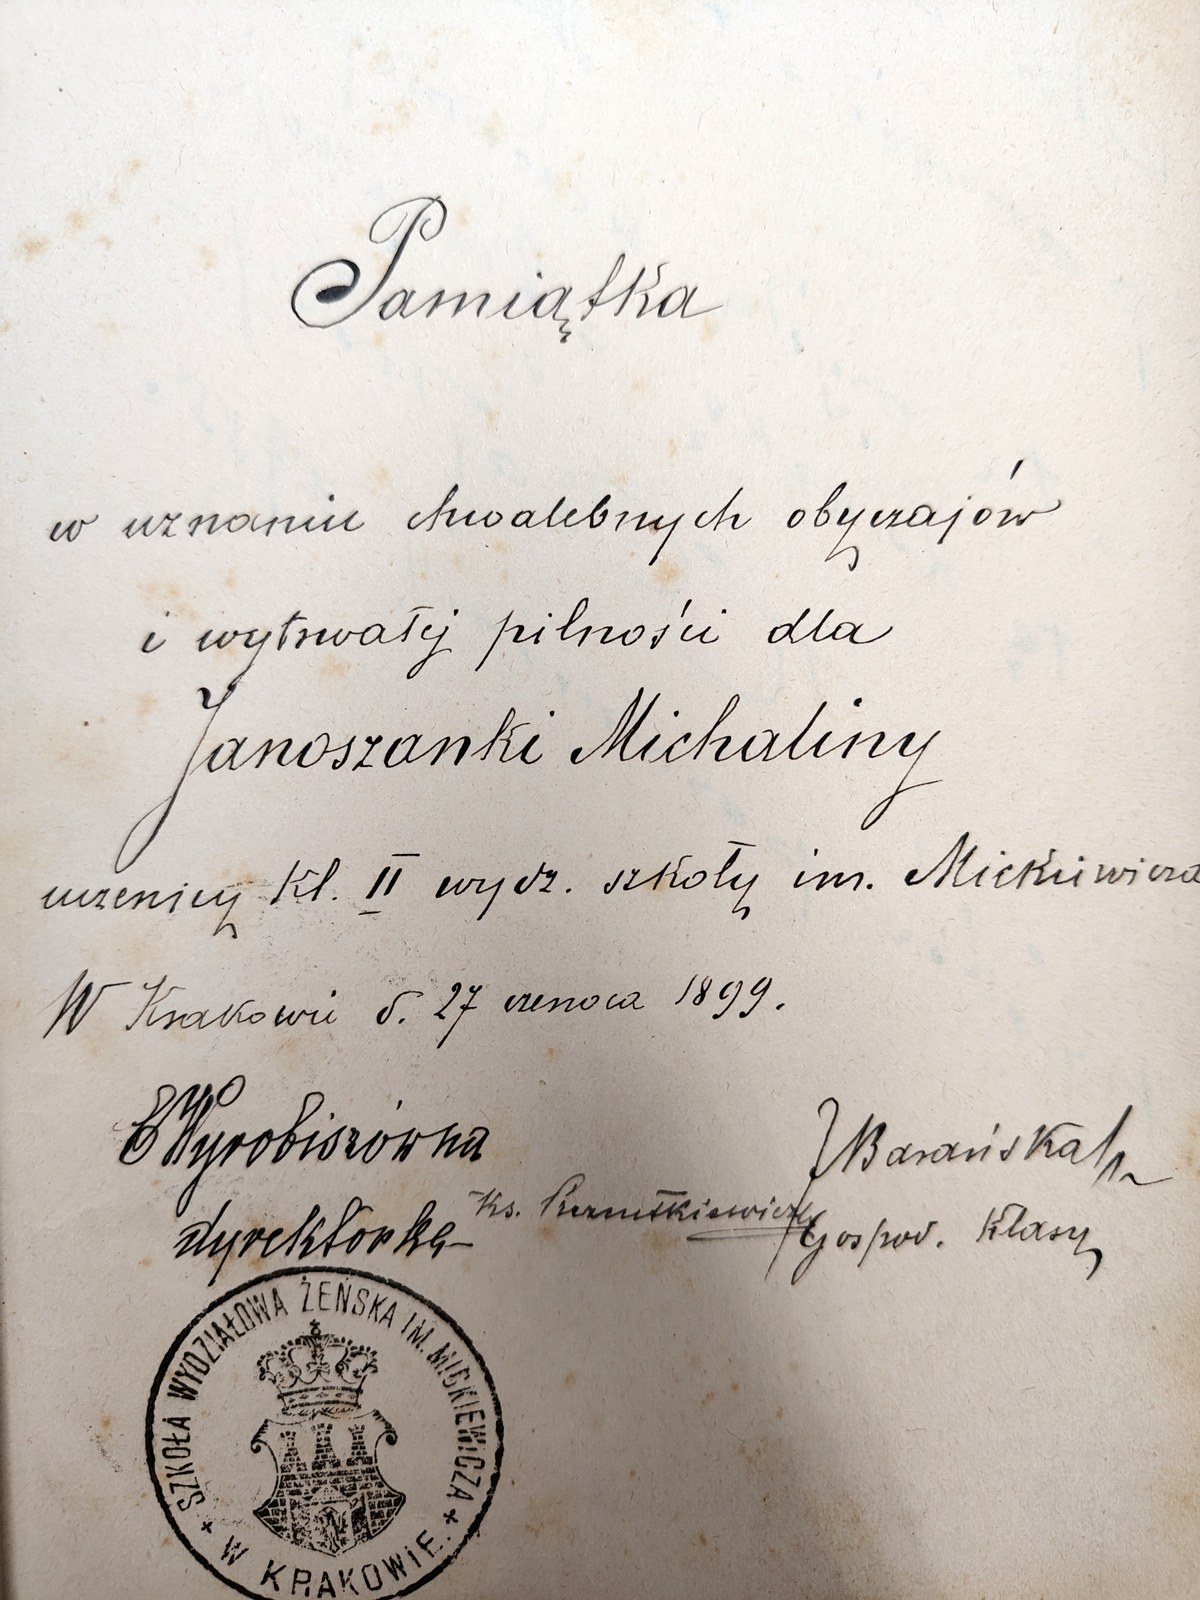 Pamiątka
w uznaniu chwalebnych obyczajów
i wytrwałej pilności dla
Janoszanki Michaliny
uczenicy kl. II wydz. szkoły im. Mickiewicza
W Krakowie d. 27 czerwca 1899.
E Wyrobiszówna
JBarańska
dyrektorka
Ks.
Gospod. klasy
SZKOŁA WYDZIAŁOWA ŻEŃSKA IM. MICKIEWICZA
W KRAKOWIE